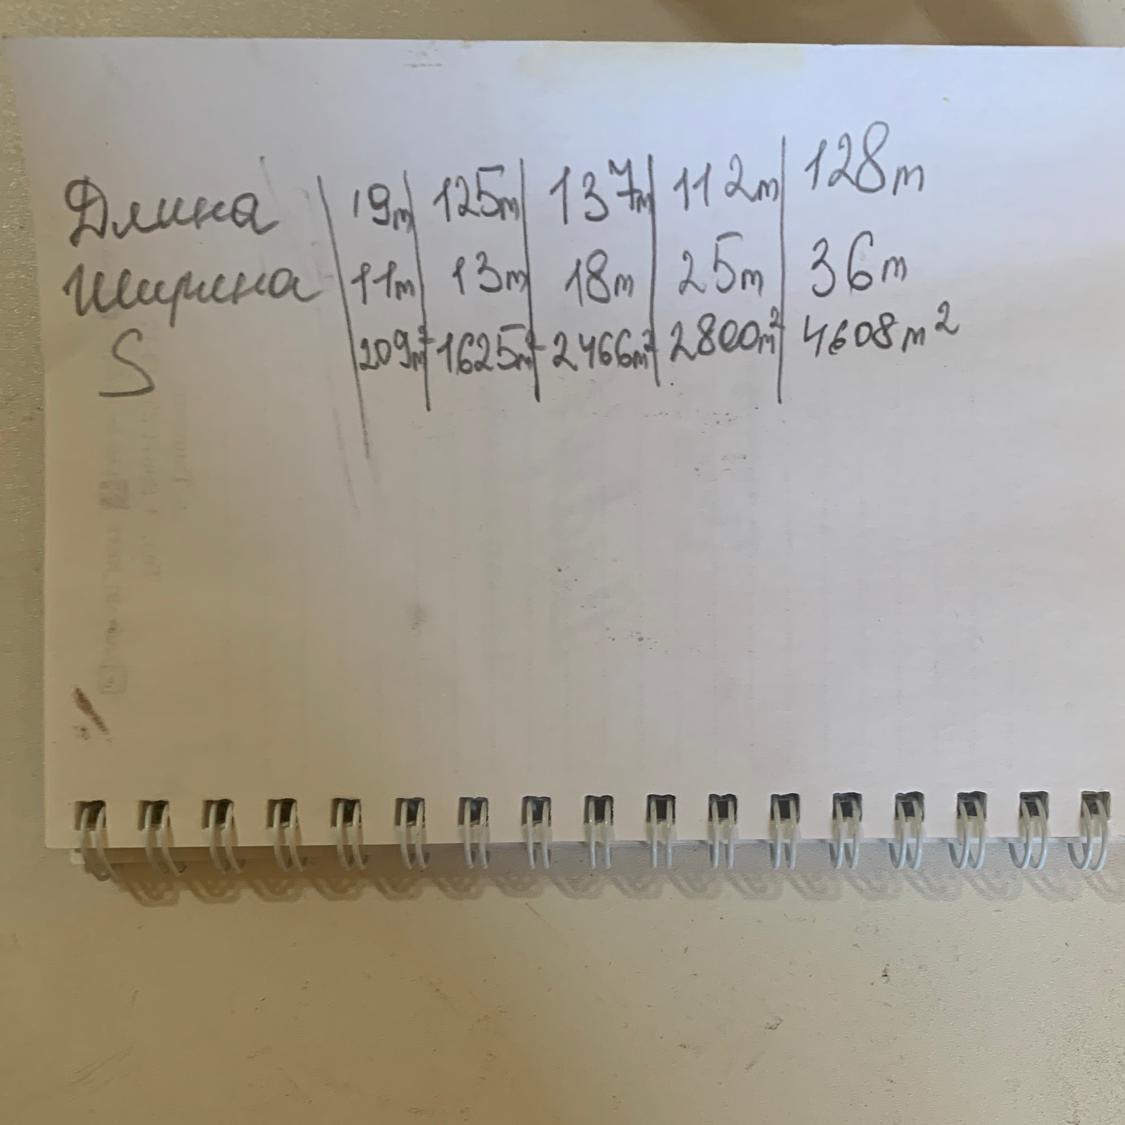 Длина | 19m | 125m | 137m | 112m | 128m
Ширина | 11m | 13m | 18m | 25m | 36m
S | 209m² | 1625m² | 2466m² | 2800m² | 4608m²